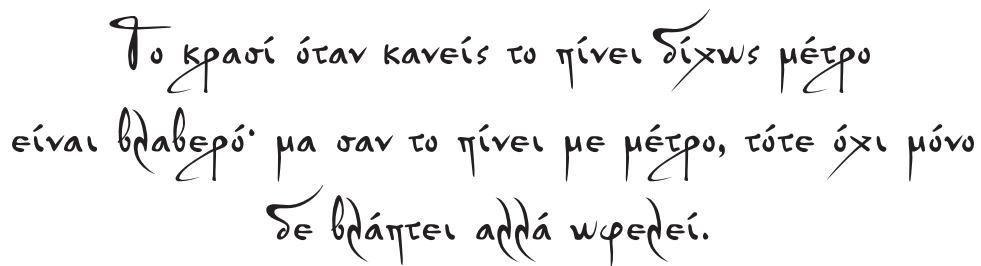 Το κρασί όταν κανείς το πίνει δίχως μέτρο
είναι βλαβερό· μα σαν το πίνει με μέτρο, τότε όχι μόνο
δε βλάπτει αλλά ωφελεί.